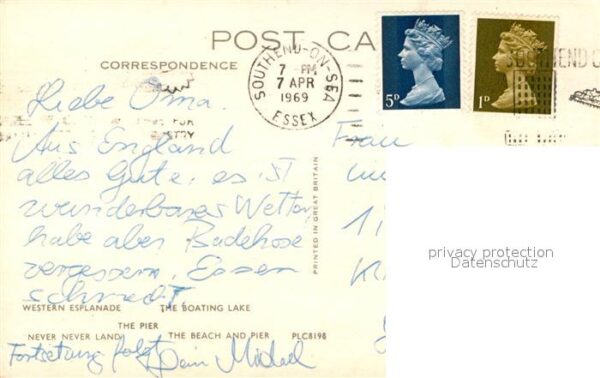 POST CA
CORRESPONDENCE
SOUTHEND-ON-SEA
7 - PM
7 APR
1969
ESSEX
5D
1D
Liebe Oma.
Aus England
alles Gute, es ist
wunderbares Wetter
habe aber Badehose
vergessen. Essen
schmeckt.
Fortsetzung folgt Dein Michael
Frau
PRINTED IN GREAT BRITAIN
WESTERN ESPLANADE THE BOATING LAKE
THE PIER
NEVER NEVER LAND THE BEACH AND PIER PLC8198
privacy protection
Datenschutz